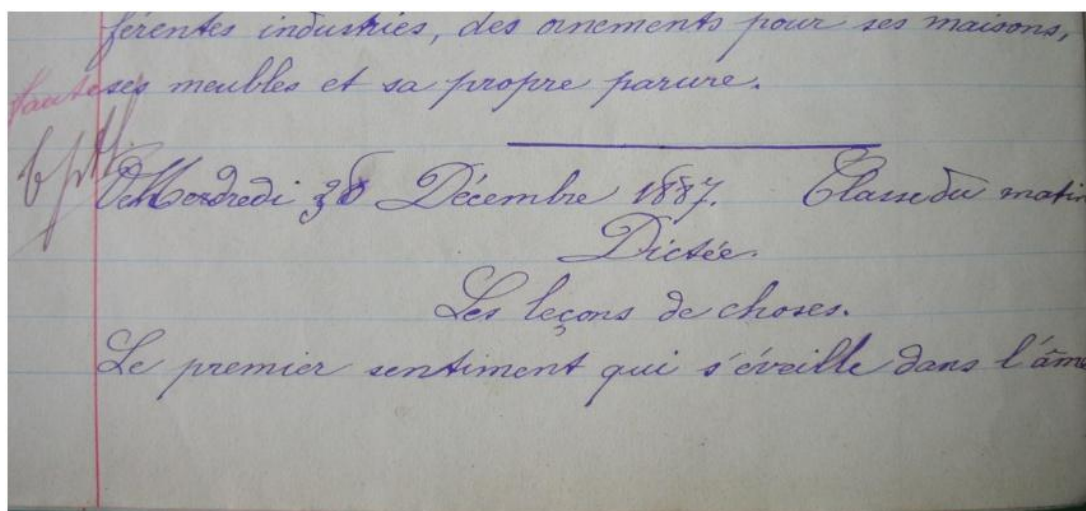 férentes industries, des ornements pour ses maisons,
faute ses meubles et sa propre parure.
30 Décembre 1887. Classe du matin
Dictée.
Les leçons de choses.
Le premier sentiment qui s'éveille dans l'âme